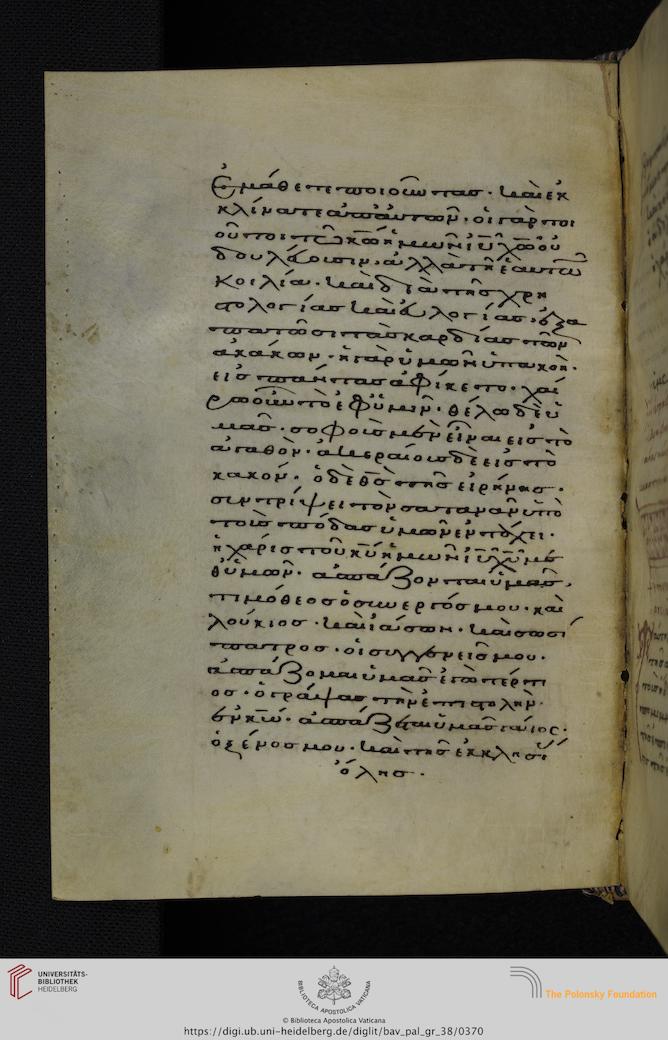 ἐμάθετε ποιοῦντας· καὶ ἐκ
κλίνατε ἀπ' αὐτῶν· οἱ γὰρ τοι
οῦτοι τῶ κω ἡμῶν ιυ χω οὐ
δουλεύουσιν· ἀλλὰ τῆ ἑαυτῶν
κοιλία· καὶ διὰ τῆς χρη
στολογίας καὶ εὐλογίας· ἐξα
πατῶσι τὰς καρδίας τῶν
ἀκάκων· ἡ γὰρ ὑμῶν ὑπακοὴ·
εἰς πάντας ἀφίκετο· χαί
ρω οὖν τὸ ἐφ' ὑμῖν· θέλω δὲ ὑ
μᾶς· σοφοὺς μὲν εἶναι εἰς τὸ
ἀγαθὸν· ἀκεραίους δὲ εἰς τὸ
κακόν· ὁ δὲ θς τῆς εἰρήνης·
συντρίψει τὸν σατανᾶν ὑπὸ
τοὺς πόδας ὑμῶν ἐν τάχει·
ἡ χάρις τοῦ κυ ἡμῶν ιυ χυ με
θ' ὑμῶν· ἀσπάζονται ὑμᾶς·
τιμόθεος ὁ συνεργός μου· καὶ
λούκιος· καὶ ἰάσων· καὶ σωσί
πατρος· οἱ συγγενεῖς μου·
ἀσπάζομαι ὑμᾶς ἐγὼ τέρτι
ος· ὁ γράψας τὴν ἐπιστολὴν·
ἐν κω· ἀσπάζεται ὑμᾶς γάιος·
ὁ ξένος μου· καὶ τῆς ἐκκλησί
ὅλης·
UNIVERSITÄTS-
BIBLIOTHEK
HEIDELBERG
BIBLIOTECA APOSTOLICA VATICANA
The Polonsky Foundation
© Biblioteca Apostolica Vaticana
https://digi.ub.uni-heidelberg.de/diglit/bav_pal_gr_38/0370